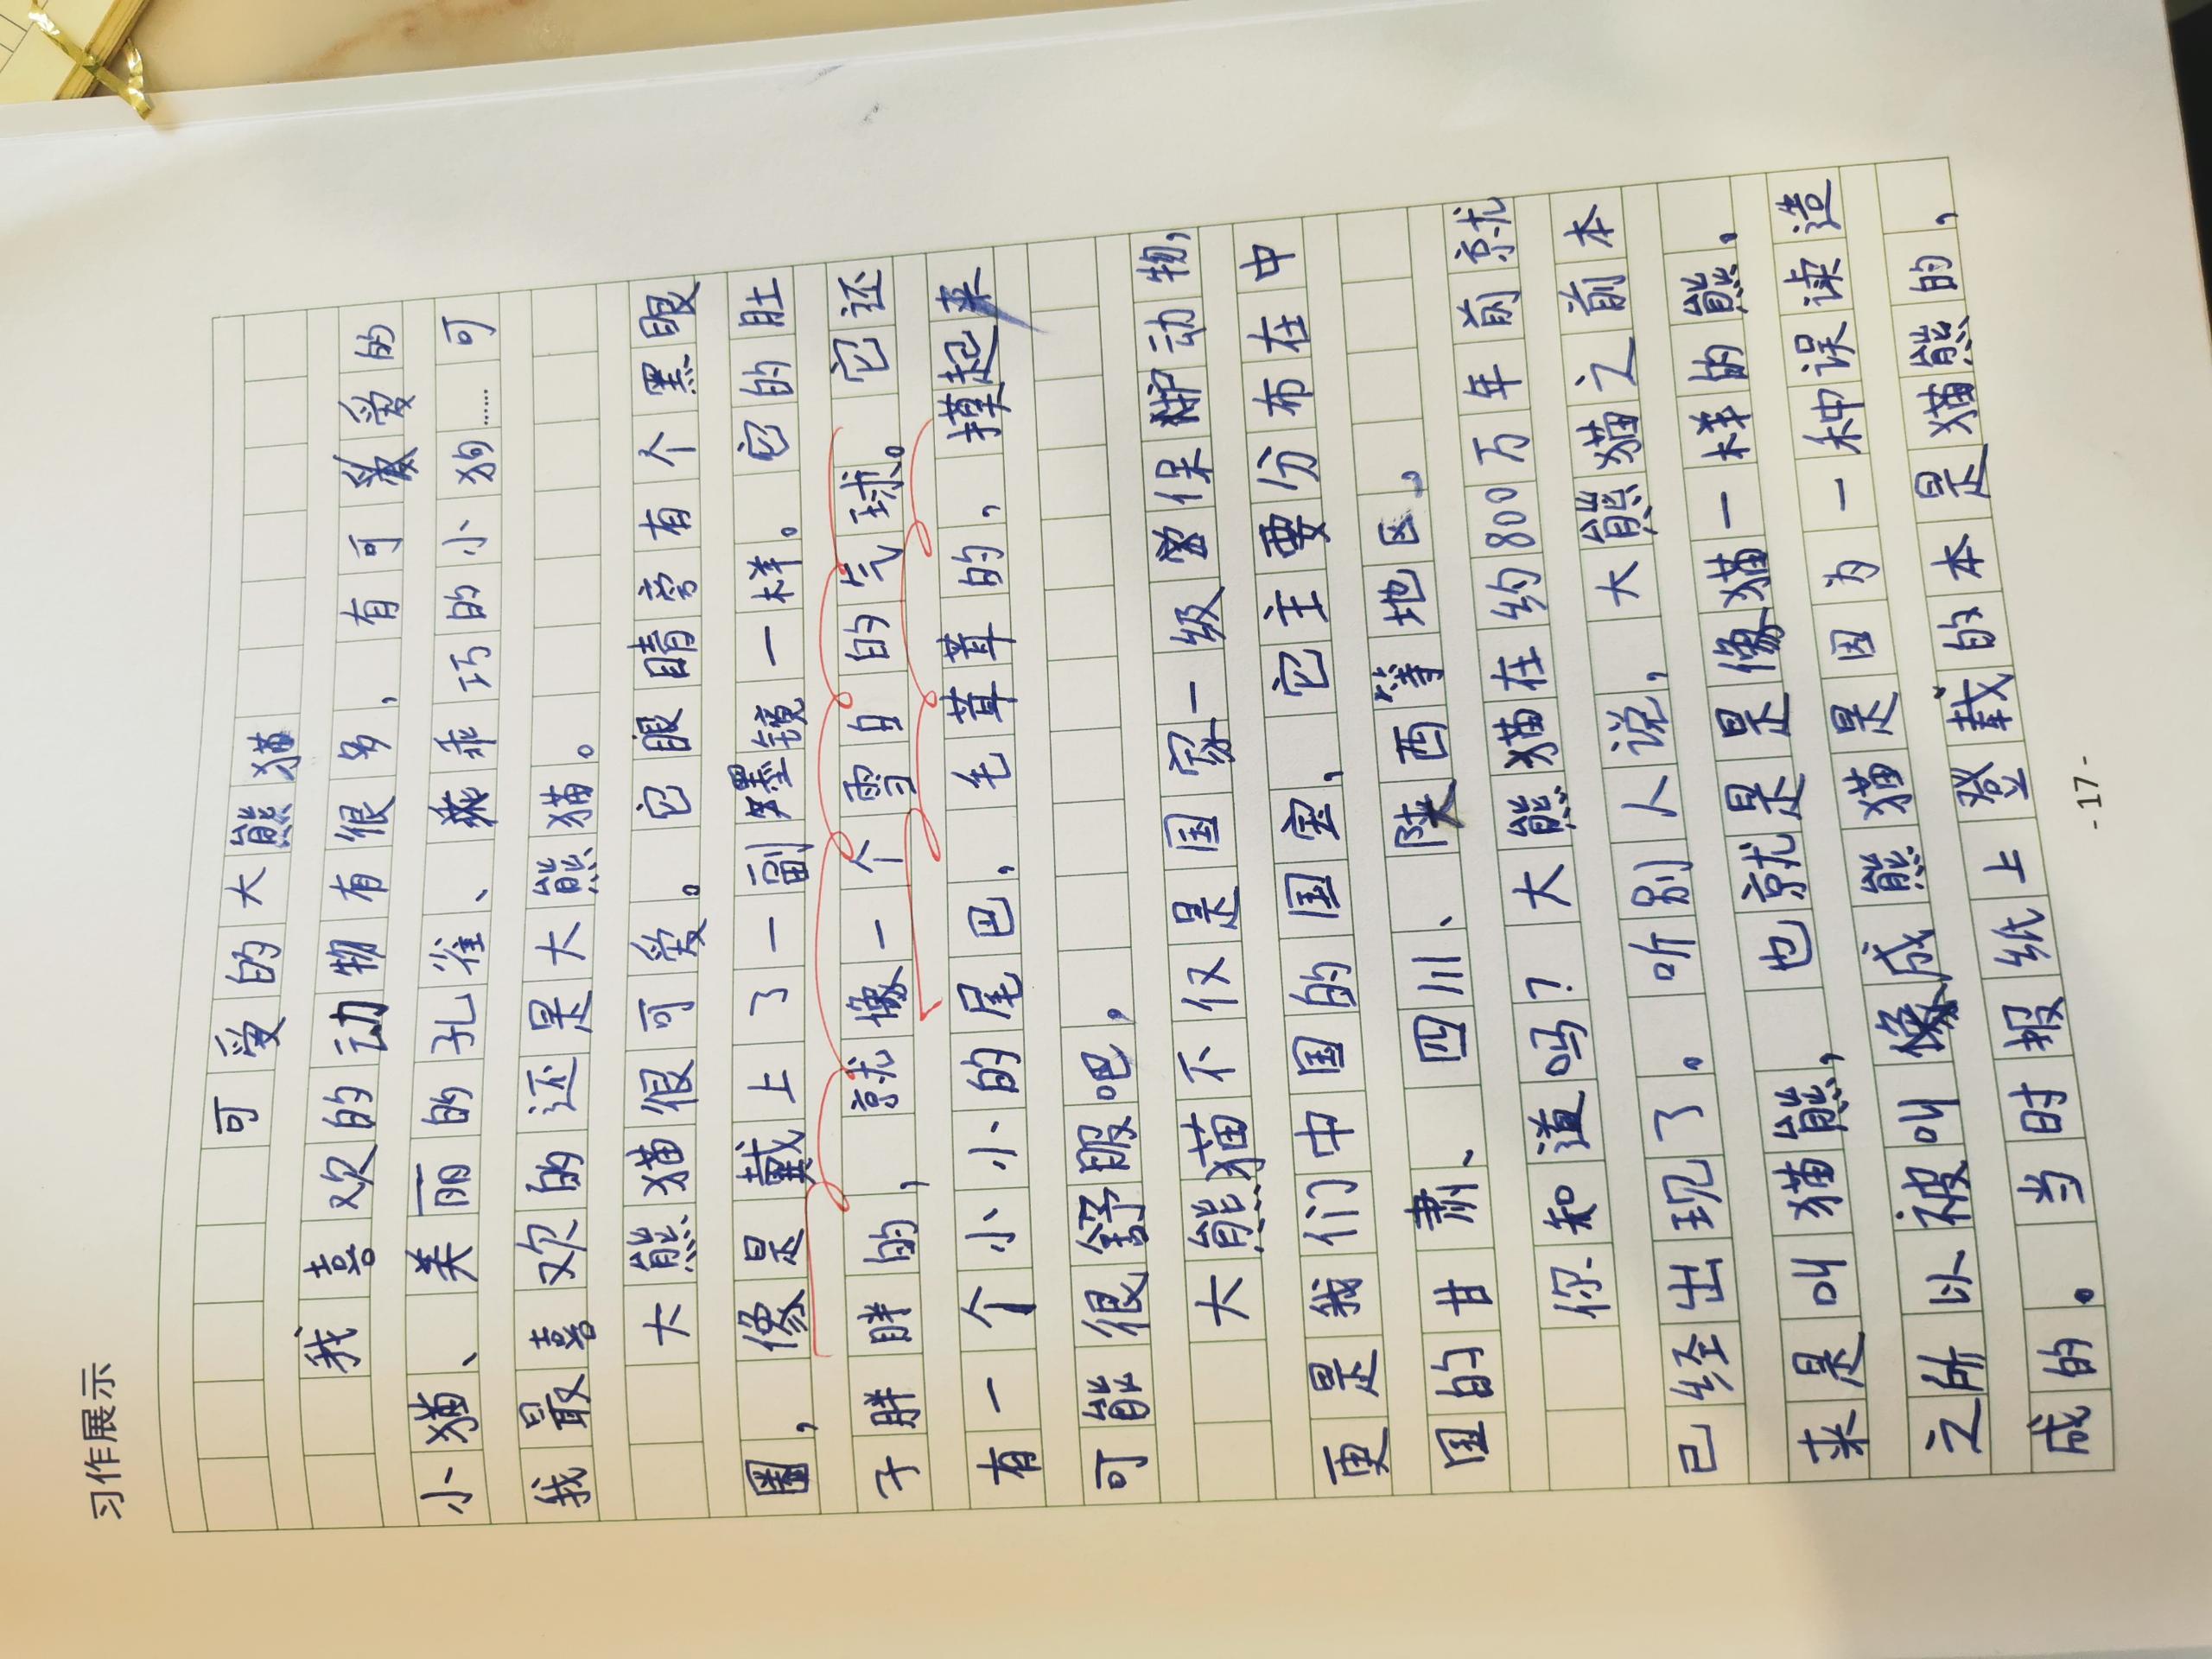 习作展示
可爱的大熊猫
我喜欢的动物有很多，有可爱的
小猫、美丽的孔雀、乖巧的小狗……可
我最喜欢的还是大熊猫。
大熊猫很可爱。它眼睛旁有个黑眼
圈，像是戴上了一副墨镜一样。它的肚
子胖胖的，就像一个雪白的气球。它还
有一个小小的尾巴，毛茸茸的，摸起来
可能很舒服吧，
大熊猫不仅是国家一级保护动物，
更是我们中国的国宝，它主要分布在中
国的甘肃、四川、陕西等地区。
你知道吗？大熊猫在约800万年前就
已经出现了。听别人说，大熊猫之前本
来是叫猫熊，也就是是像猫一样的熊，
之所以被叫成熊猫是因为一种误读造
成的。当时报纸上登载的本是猫熊的，
-17-